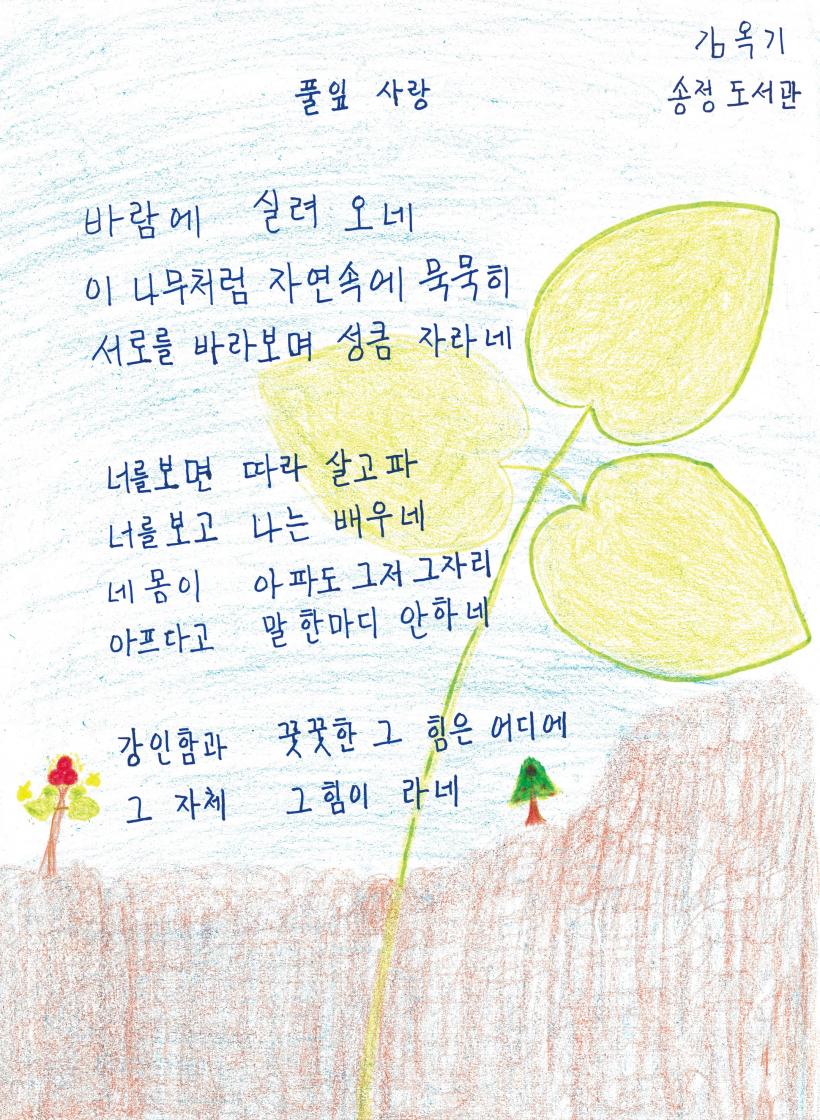 김옥기
송정 도서관
풀잎 사랑
바람에 실려 오네
이 나무처럼 자연속에 묵묵히
서로를 바라보며 성큼 자라네
너를보면 따라 살고파
너를보고 나는 배우네
네 몸이 아파도 그저 그자리
아프다고 말 한마디 안하네
강인함과 꿋꿋한 그 힘은 어디에
그 자체 그 힘이 라네